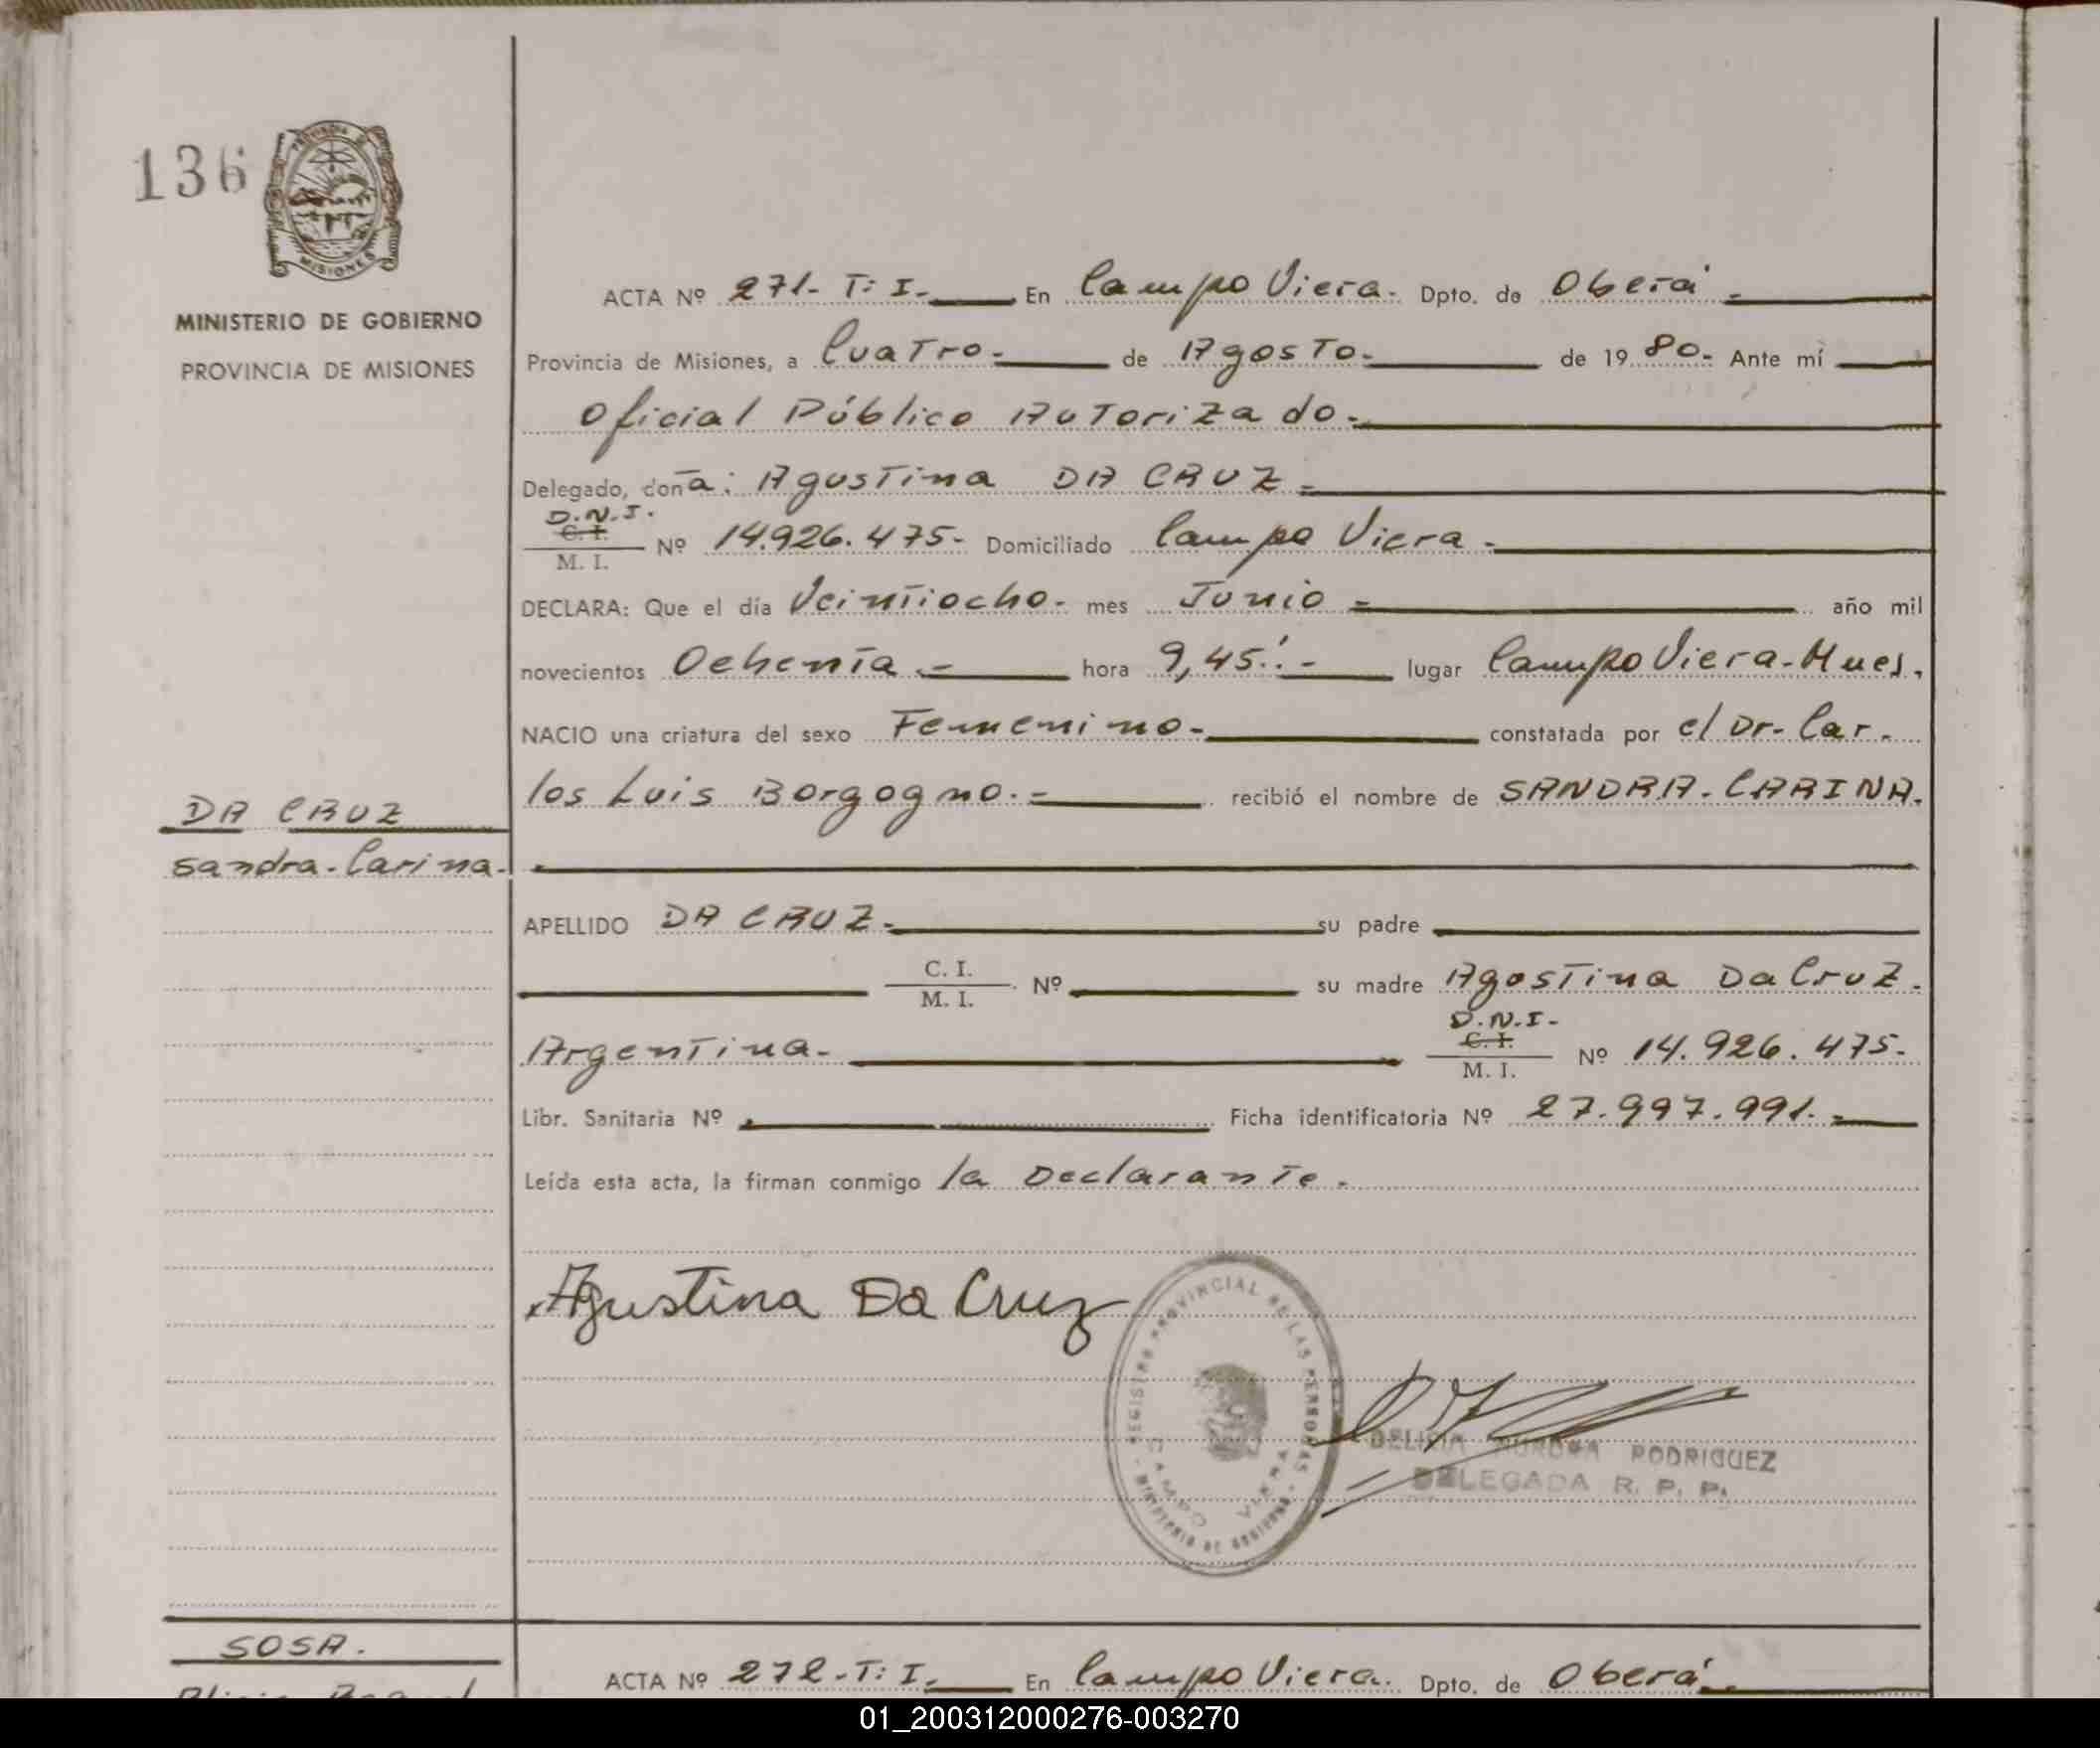 136
PROVINCIA DE
MISIONES
MINISTERIO DE GOBIERNO
PROVINCIA DE MISIONES
ACTA Nº 271- T: I.- En Campo Viera. Dpto. de Oberá -
Provincia de Misiones, a Cuatro.- de Agosto.- de 19 80.- Ante mí
Oficial Público Autorizado.-
Delegado, doña: Agustina DA CRUZ -
D.N.I.
C. I.
M. I. Nº 14.926.475- Domiciliado Campo Viera -
DECLARA: Que el día Veintiocho- mes Junio - año mil
novecientos Ochenta.- hora 9,45.'.- lugar Campo Viera-Mnes.
NACIO una criatura del sexo Femenino.- constatada por el Dr- Car-
los Luis Borgogno.- recibió el nombre de SANDRA-CARINA.
DA CRUZ
Sandra-Carina.-
APELLIDO DA CRUZ.- su padre
C. I.
M. I. Nº su madre Agostina Da Cruz.
Argentina.-
D.N.I-
C. I.
M. I. Nº 14.926.475-
Libr. Sanitaria Nº Ficha identificatoria Nº 27.997.991.-
Leída esta acta, la firman conmigo la Declarante.
Agustina Da Cruz
REGISTRO PROVINCIAL DE LAS PERSONAS
CAMPO VIERA
MINISTERIO DE GOBIERNO
AURORA RODRIGUEZ
DELEGADA R. P. P.
SOSA.
ACTA Nº 272-T: I.- En Campo Viera. Dpto. de Oberá.-
01_200312000276-003270